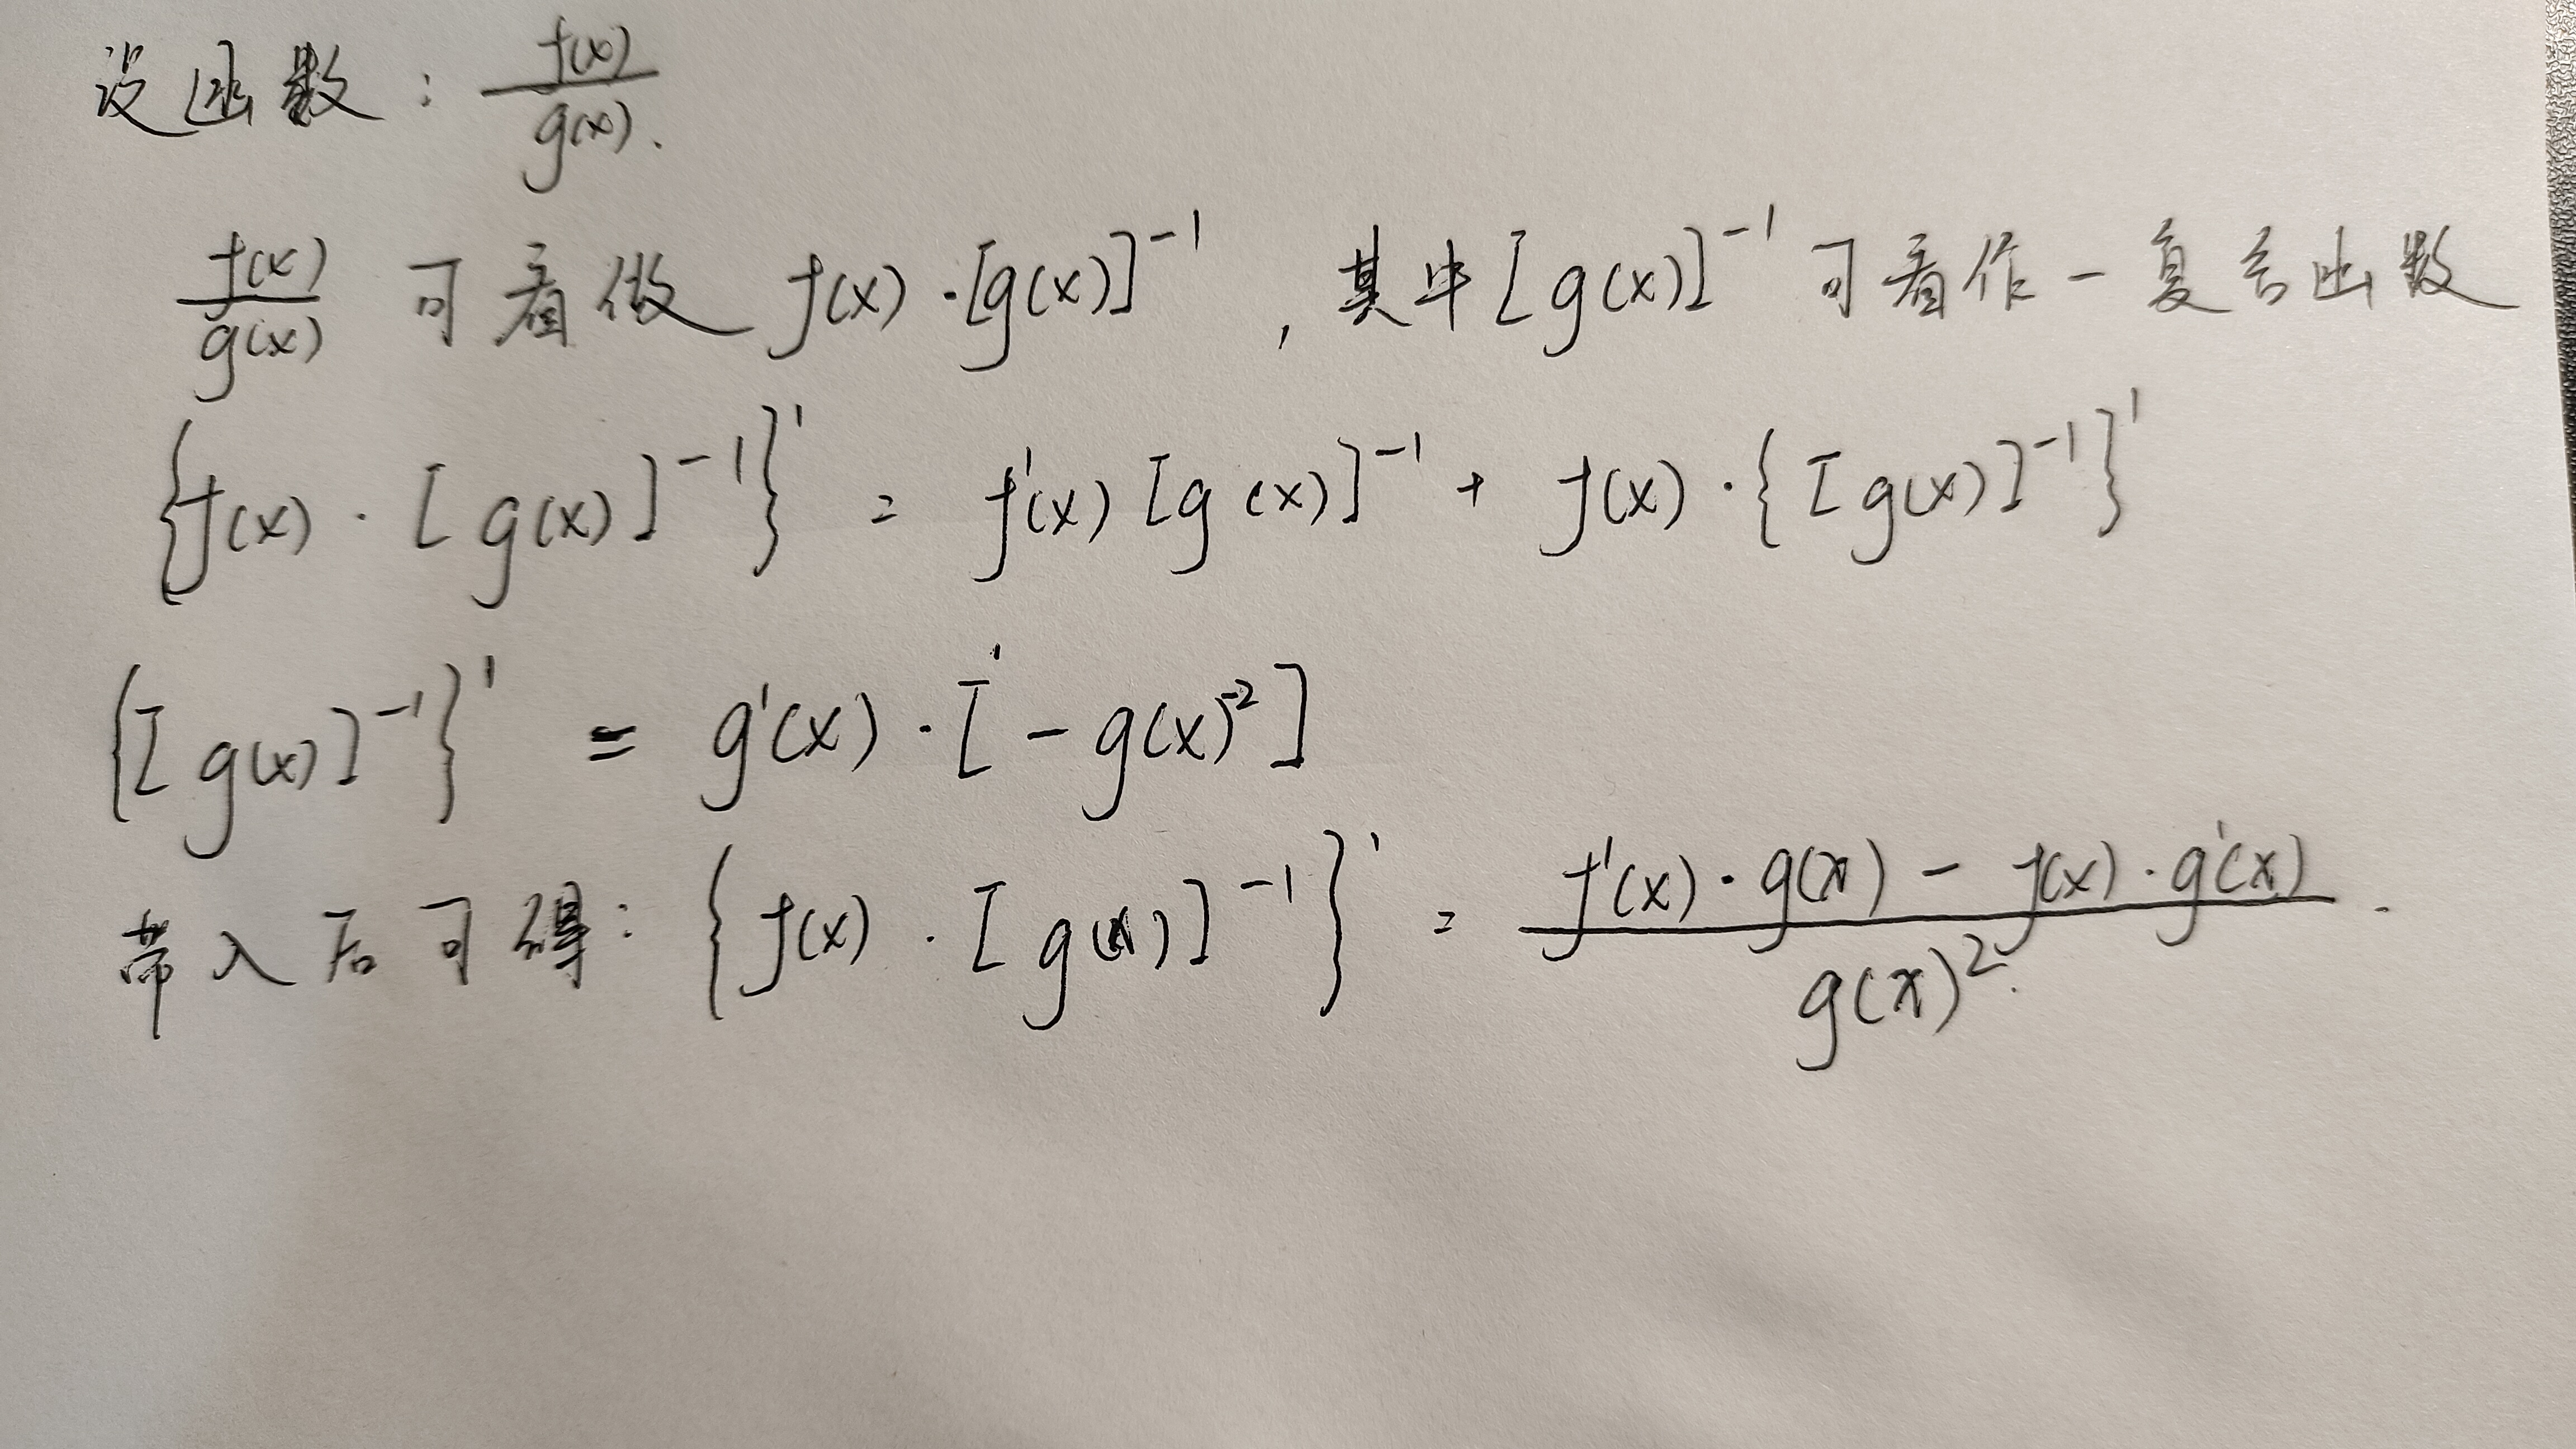 设函数: f(x)/g(x).
f(x)/g(x) 可看做 f(x)·[g(x)]⁻¹, 其中[g(x)]⁻¹可看作一复合函数
{f(x)·[g(x)]⁻¹}' = f'(x)[g(x)]⁻¹ + f(x)·{[g(x)]⁻¹}'
{[g(x)]⁻¹}' = g'(x)·[-g(x)⁻²]
带入后可得: {f(x)·[g(x)]⁻¹}' = (f'(x)·g(x) - f(x)·g'(x))/g(x)².